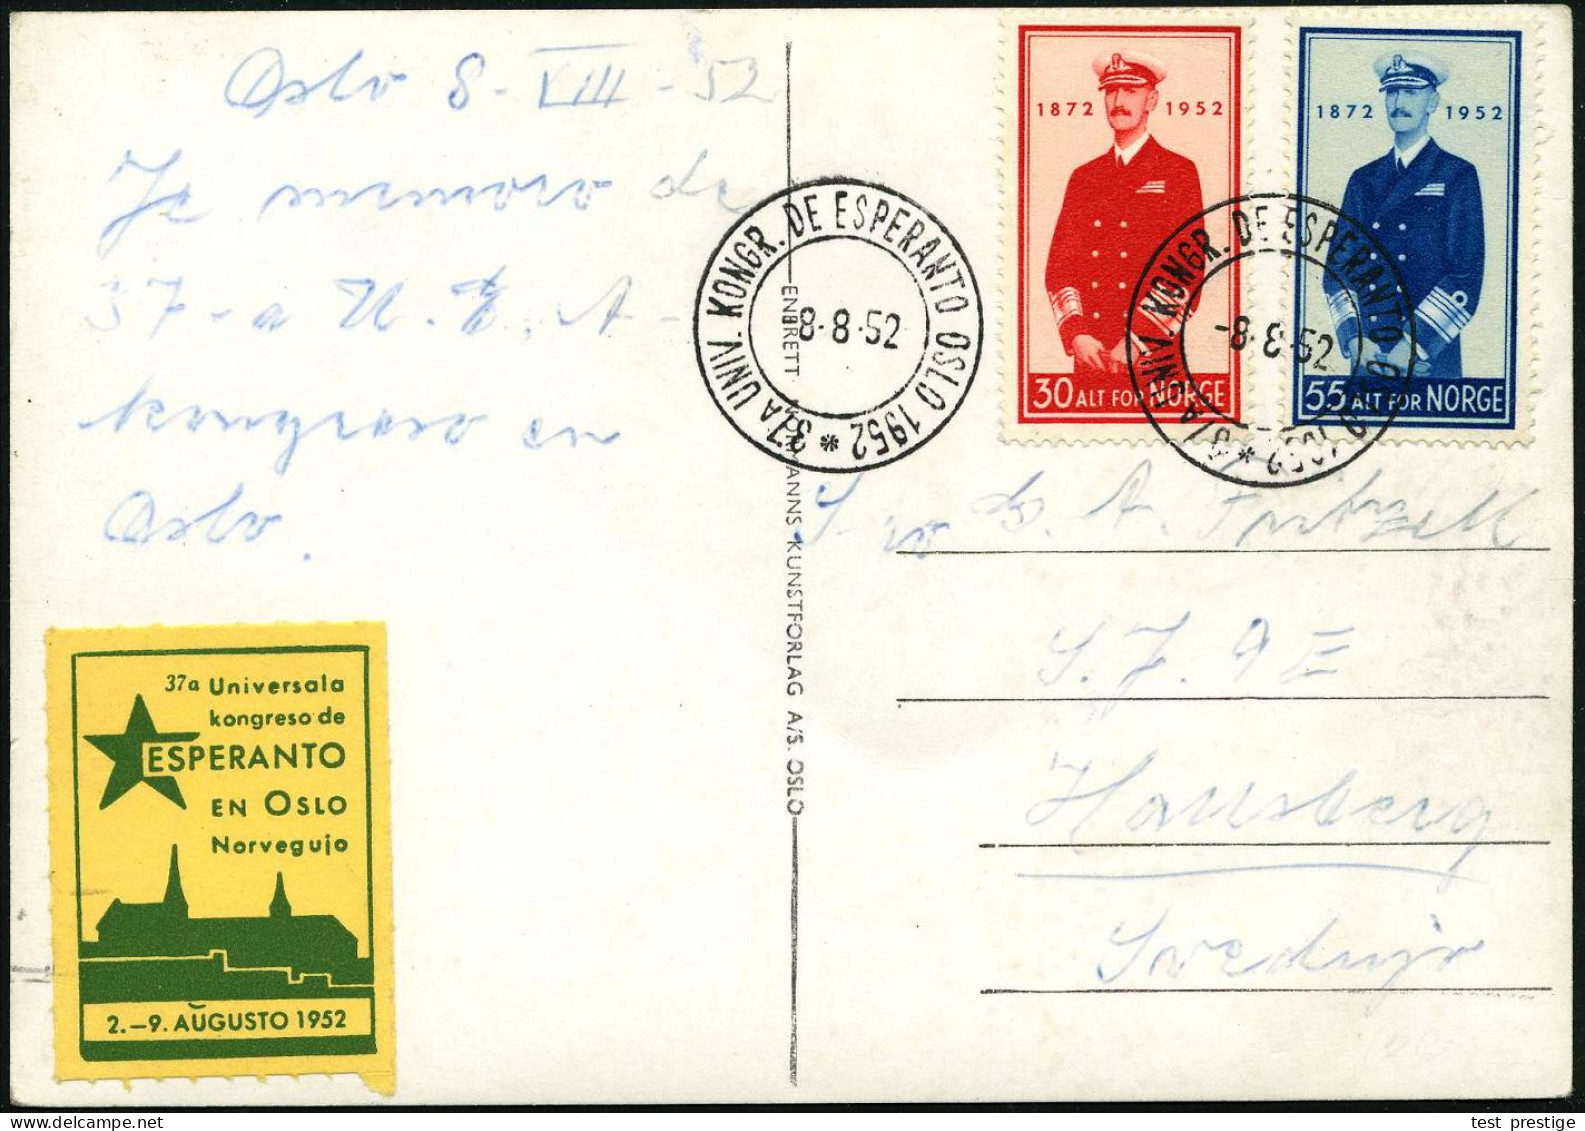 Oslo 8-VIII-52
Je memoro de
37-a U.E.A-
kongreso en
Oslo.
37a Universala
kongreso de
ESPERANTO
EN OSLO
Norvegujo
2.–9. AŬGUSTO 1952
37A UNIV. KONGR. DE ESPERANTO OSLO 1952 *
8-8-52
ENERETT KUNSTFORLAG A/S. OSLO
1872 1952
30 ALT FOR NORGE
1872 1952
55 ALT FOR NORGE
37A UNIV. KONGR. DE ESPERANTO OSLO 1952 *
-8-8-52
S-ro A.
Hallsberg
Svedujo
test prestige